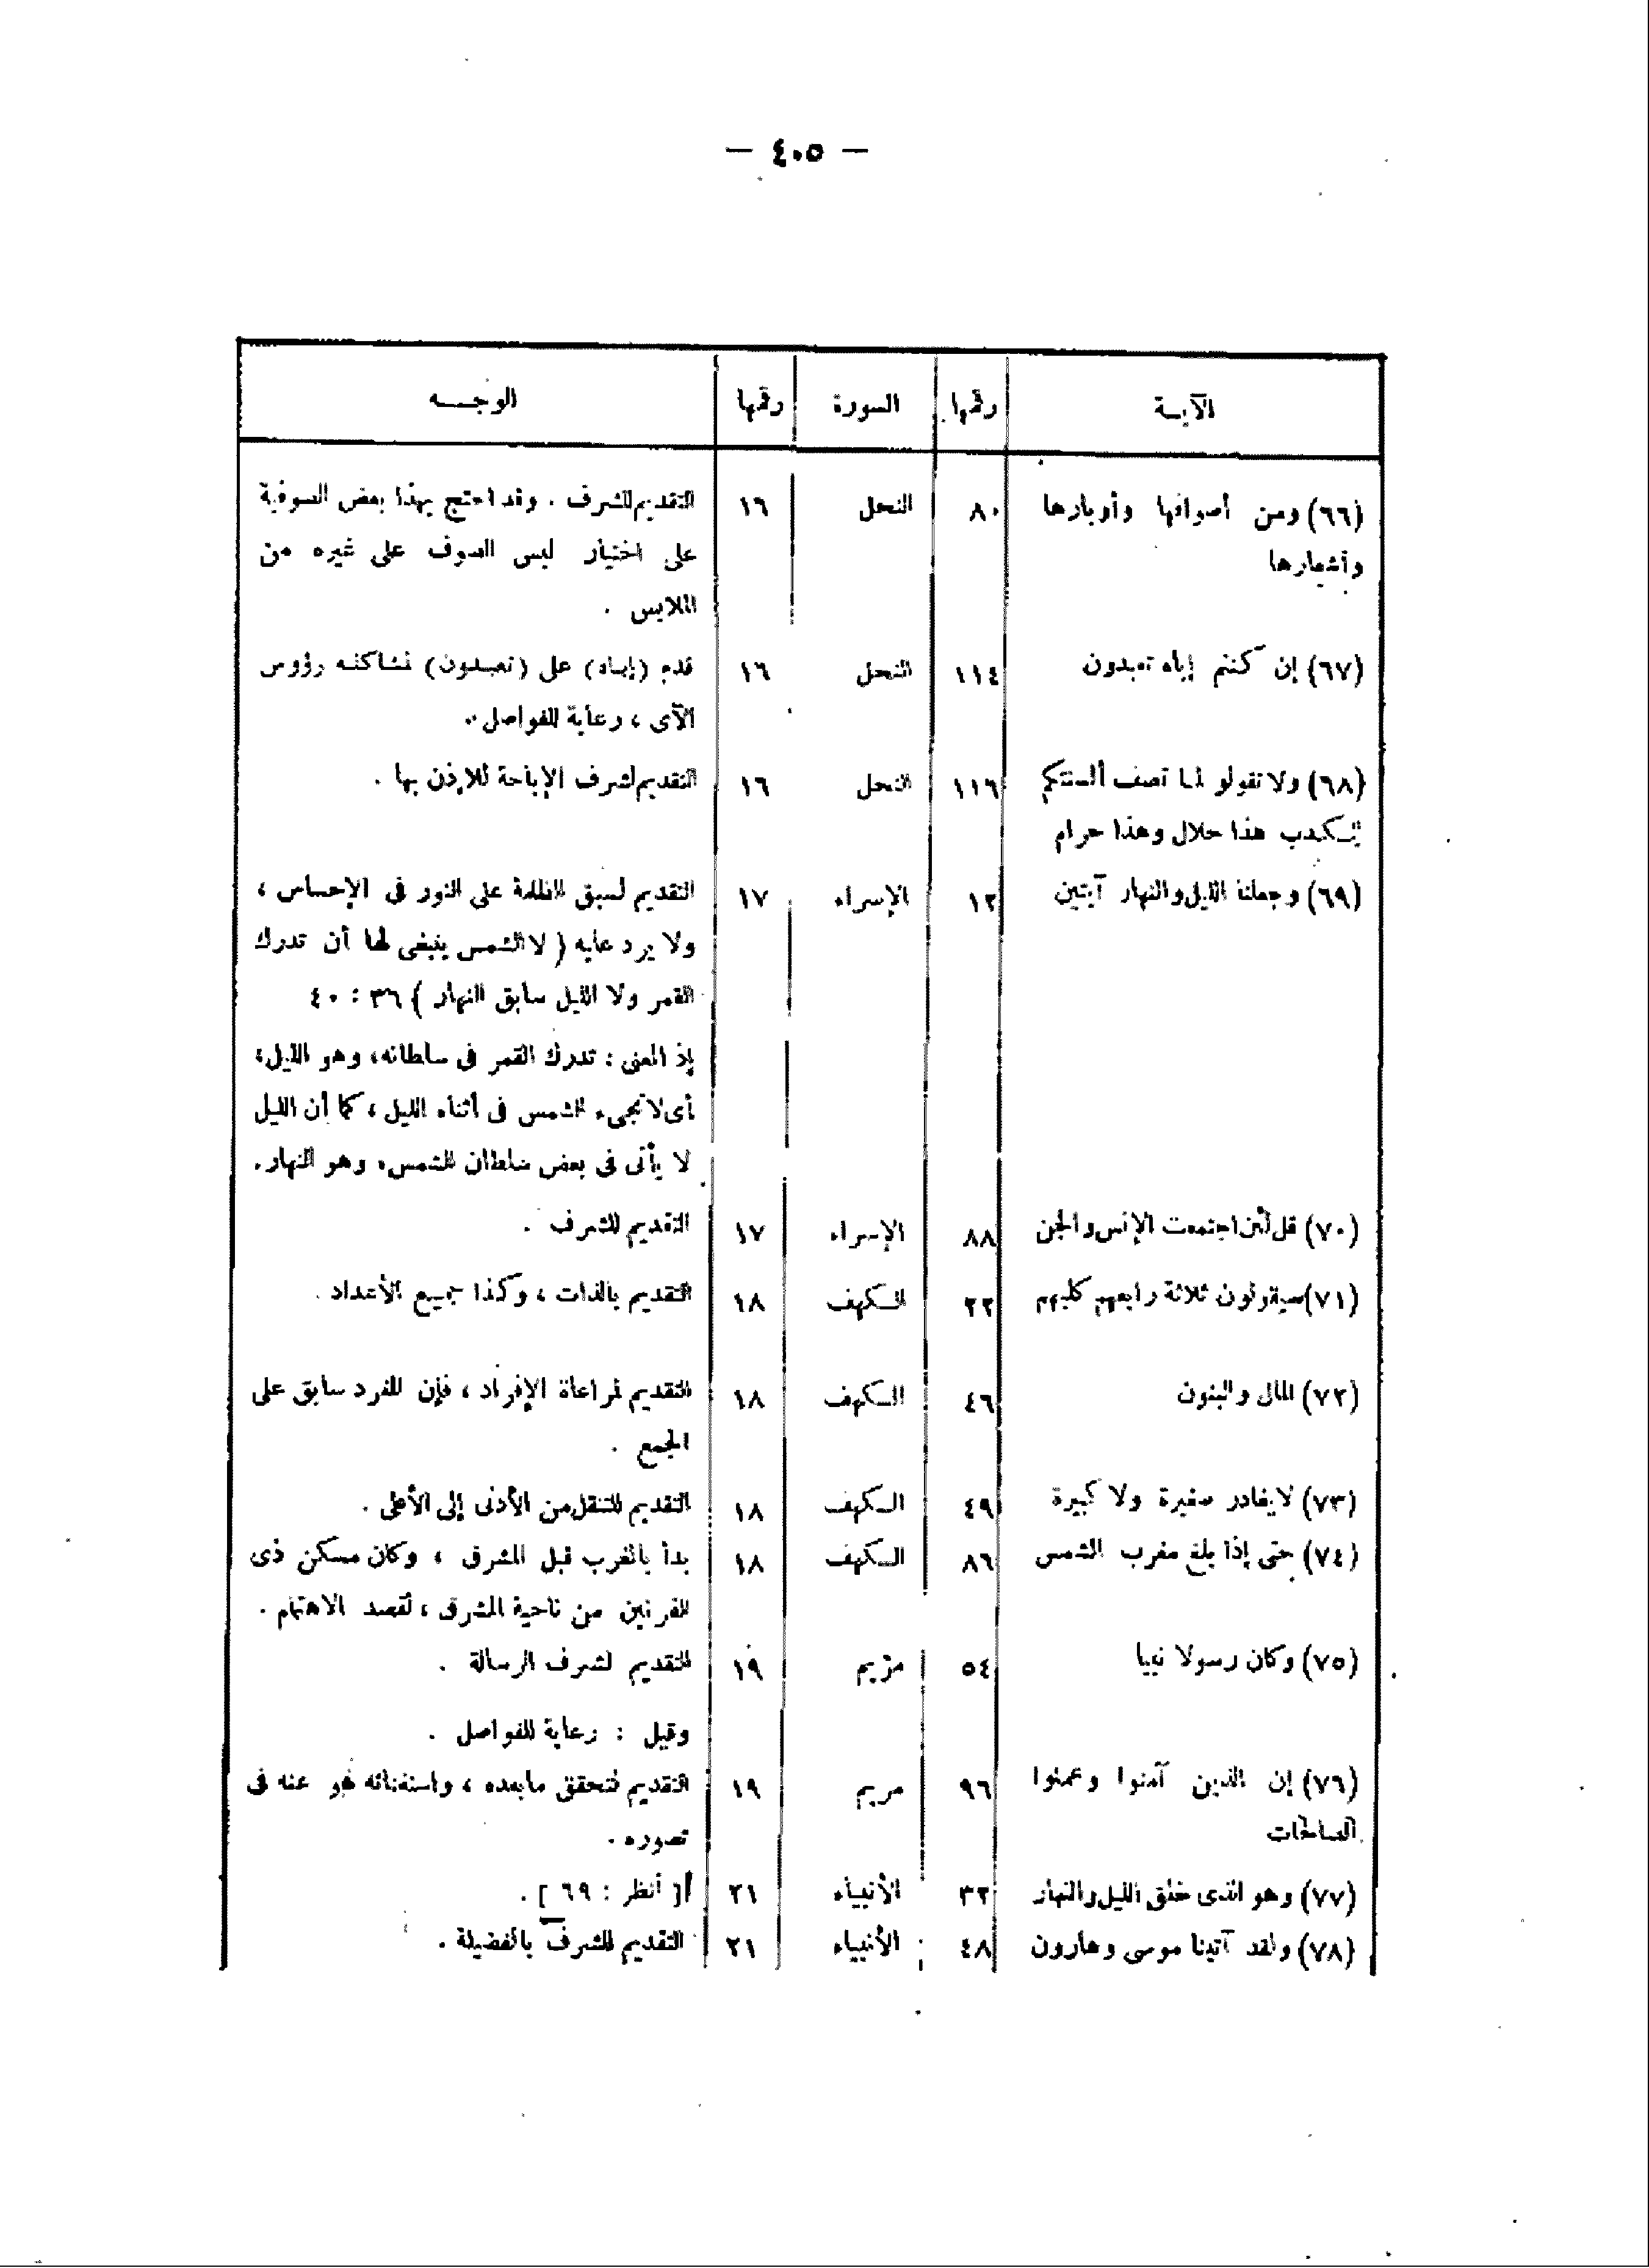 — ٤٠٥ —
الآيـة رقمها السورة رقمها الوجـــه
(٦٦) ومن أصوافها وأوبارها ٨٠ النحل ١٦ التقديم للشرف . وقد احتج بهذا بعض الصوفية
وأشعارها على اختيار لبس الصوف على غيره من
الملابس .
(٦٧) إن كنتم إياه تعبدون ١١٤ النحل ١٦ قدم (إيـاه) على (تعبـدون) لمشاكلـة رؤوس
الآى ، رعاية للفواصل .
(٦٨) ولا تقولو لما تصف ألسنتكم ١١٦ النحل ١٦ التقديم لشرف الإباحة للإذن بها .
الـكذب هذا حلال وهذا حرام
(٦٩) وجعلنا الليل والنهار آيتين ١٢ الإسراء ١٧ التقديم لسبق الظلمة على النور فى الإحساس ،
ولا يرد عليه ( لا الشمس ينبغى لها أن تدرك
القمر ولا الليل سابق النهار ) ٣٦ : ٤٠
إذ المعنى : تدرك القمر فى سلطانه، وهو الليل،
أى لا تجىء الشمس فى أثناء الليل ، كما أن الليل
لا يأتى فى بعض سلطان الشمس، وهو النهار.
(٧٠) قل لئن اجتمعت الإنس والجن ٨٨ الإسراء ١٧ التقديم للشرف .
(٧١) سيقولون ثلاثة رابعهم كلبهم ٢٢ الـكهف ١٨ التقديم بالذات ، وكذا جميع الأعداد .
(٧٢) المال والبنون ٤٦ الـكهف ١٨ التقديم لمراعاة الإفراد ، فإن المفرد سابق على
الجمع .
(٧٣) لا يغادر صغيرة ولا كبيرة ٤٩ الـكهف ١٨ التقديم للتنقل من الأدنى إلى الأعلى .
(٧٤) حتى إذا بلغ مغرب الشمس ٨٦ الـكهف ١٨ بدأ بالمغرب قبل المشرق ، وكان مسكن ذى
القرنين من ناحية المشرق ، لقصد الاهتمام .
(٧٥) وكان رسولا نبيا ٥٤ مريم ١٩ التقديم لشرف الرسالة .
وقيل : رعاية للفواصل .
(٧٦) إن الذين آمنوا وعملوا ٩٦ مريم ١٩ التقديم لتحقق مابعده ، واستغنائه هو عنه فى
الصالحات تصوره .
(٧٧) وهو الذى خلق الليل والنهار ٣٣ الأنبياء ٢١ [ أنظر : ٦٩ ] .
(٧٨) ولقد آتينا موسى وهارون ٤٨ الأنبياء ٢١ التقديم للشرف بالفضيلة .